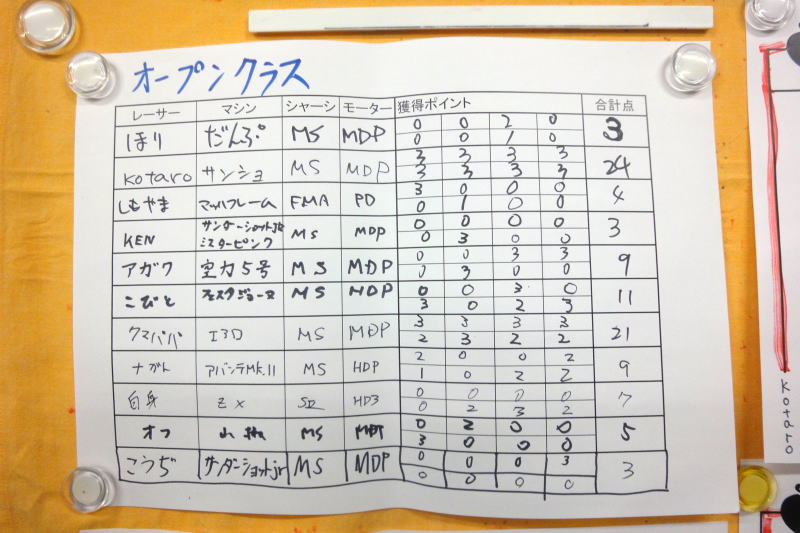 オープンクラス
レーサー マシン シャーシ モーター 獲得ポイント 合計点
ほり だんぷ MS MDP 0 0 2 0 3
0 0 1 0
kotaro サンショ MS MDP 3 3 3 3 24
3 3 3 3
しもやま マッハフレーム FMA PD 3 0 0 0 4
0 1 0 0
KEN サンダーショットjr MS MDP 0 0 0 0 3
ミスターピンク 0 3 0 0
アガワ 空力5号 MS MDP 0 0 3 3 9
0 3 0 0
こびと フェスタジョーヌ MS MDP 0 0 3 0 11
3 0 2 3
クマパパ I3D MS MDP 3 3 3 3 21
2 3 2 2
ナガん アバンテMk.II MS HDP 2 0 0 2 9
1 0 2 2
自身 ZX SII HD3 0 0 0 0 7
0 2 3 2
オフ MS 0 2 0 0 5
3 0 0 0
こうぢ サンダーショットjr MS MDP 0 0 0 3 3
0 0 0 0
kotaro